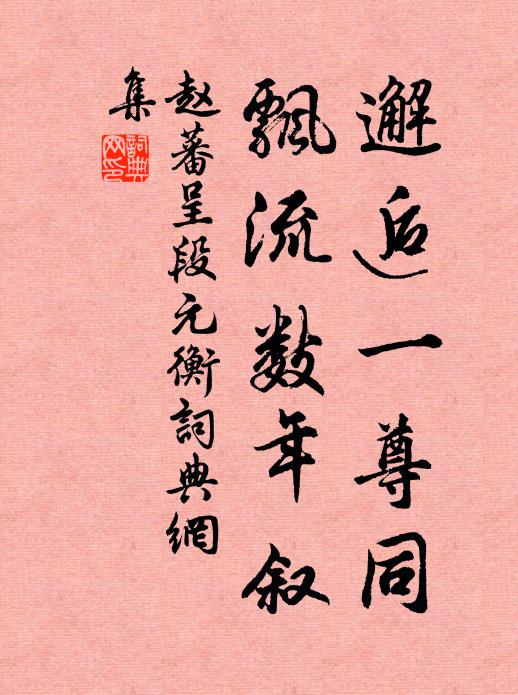 邂逅一尊同
飘流数年叙
赵蕃呈段元衡詞典網
集
詞典
网印